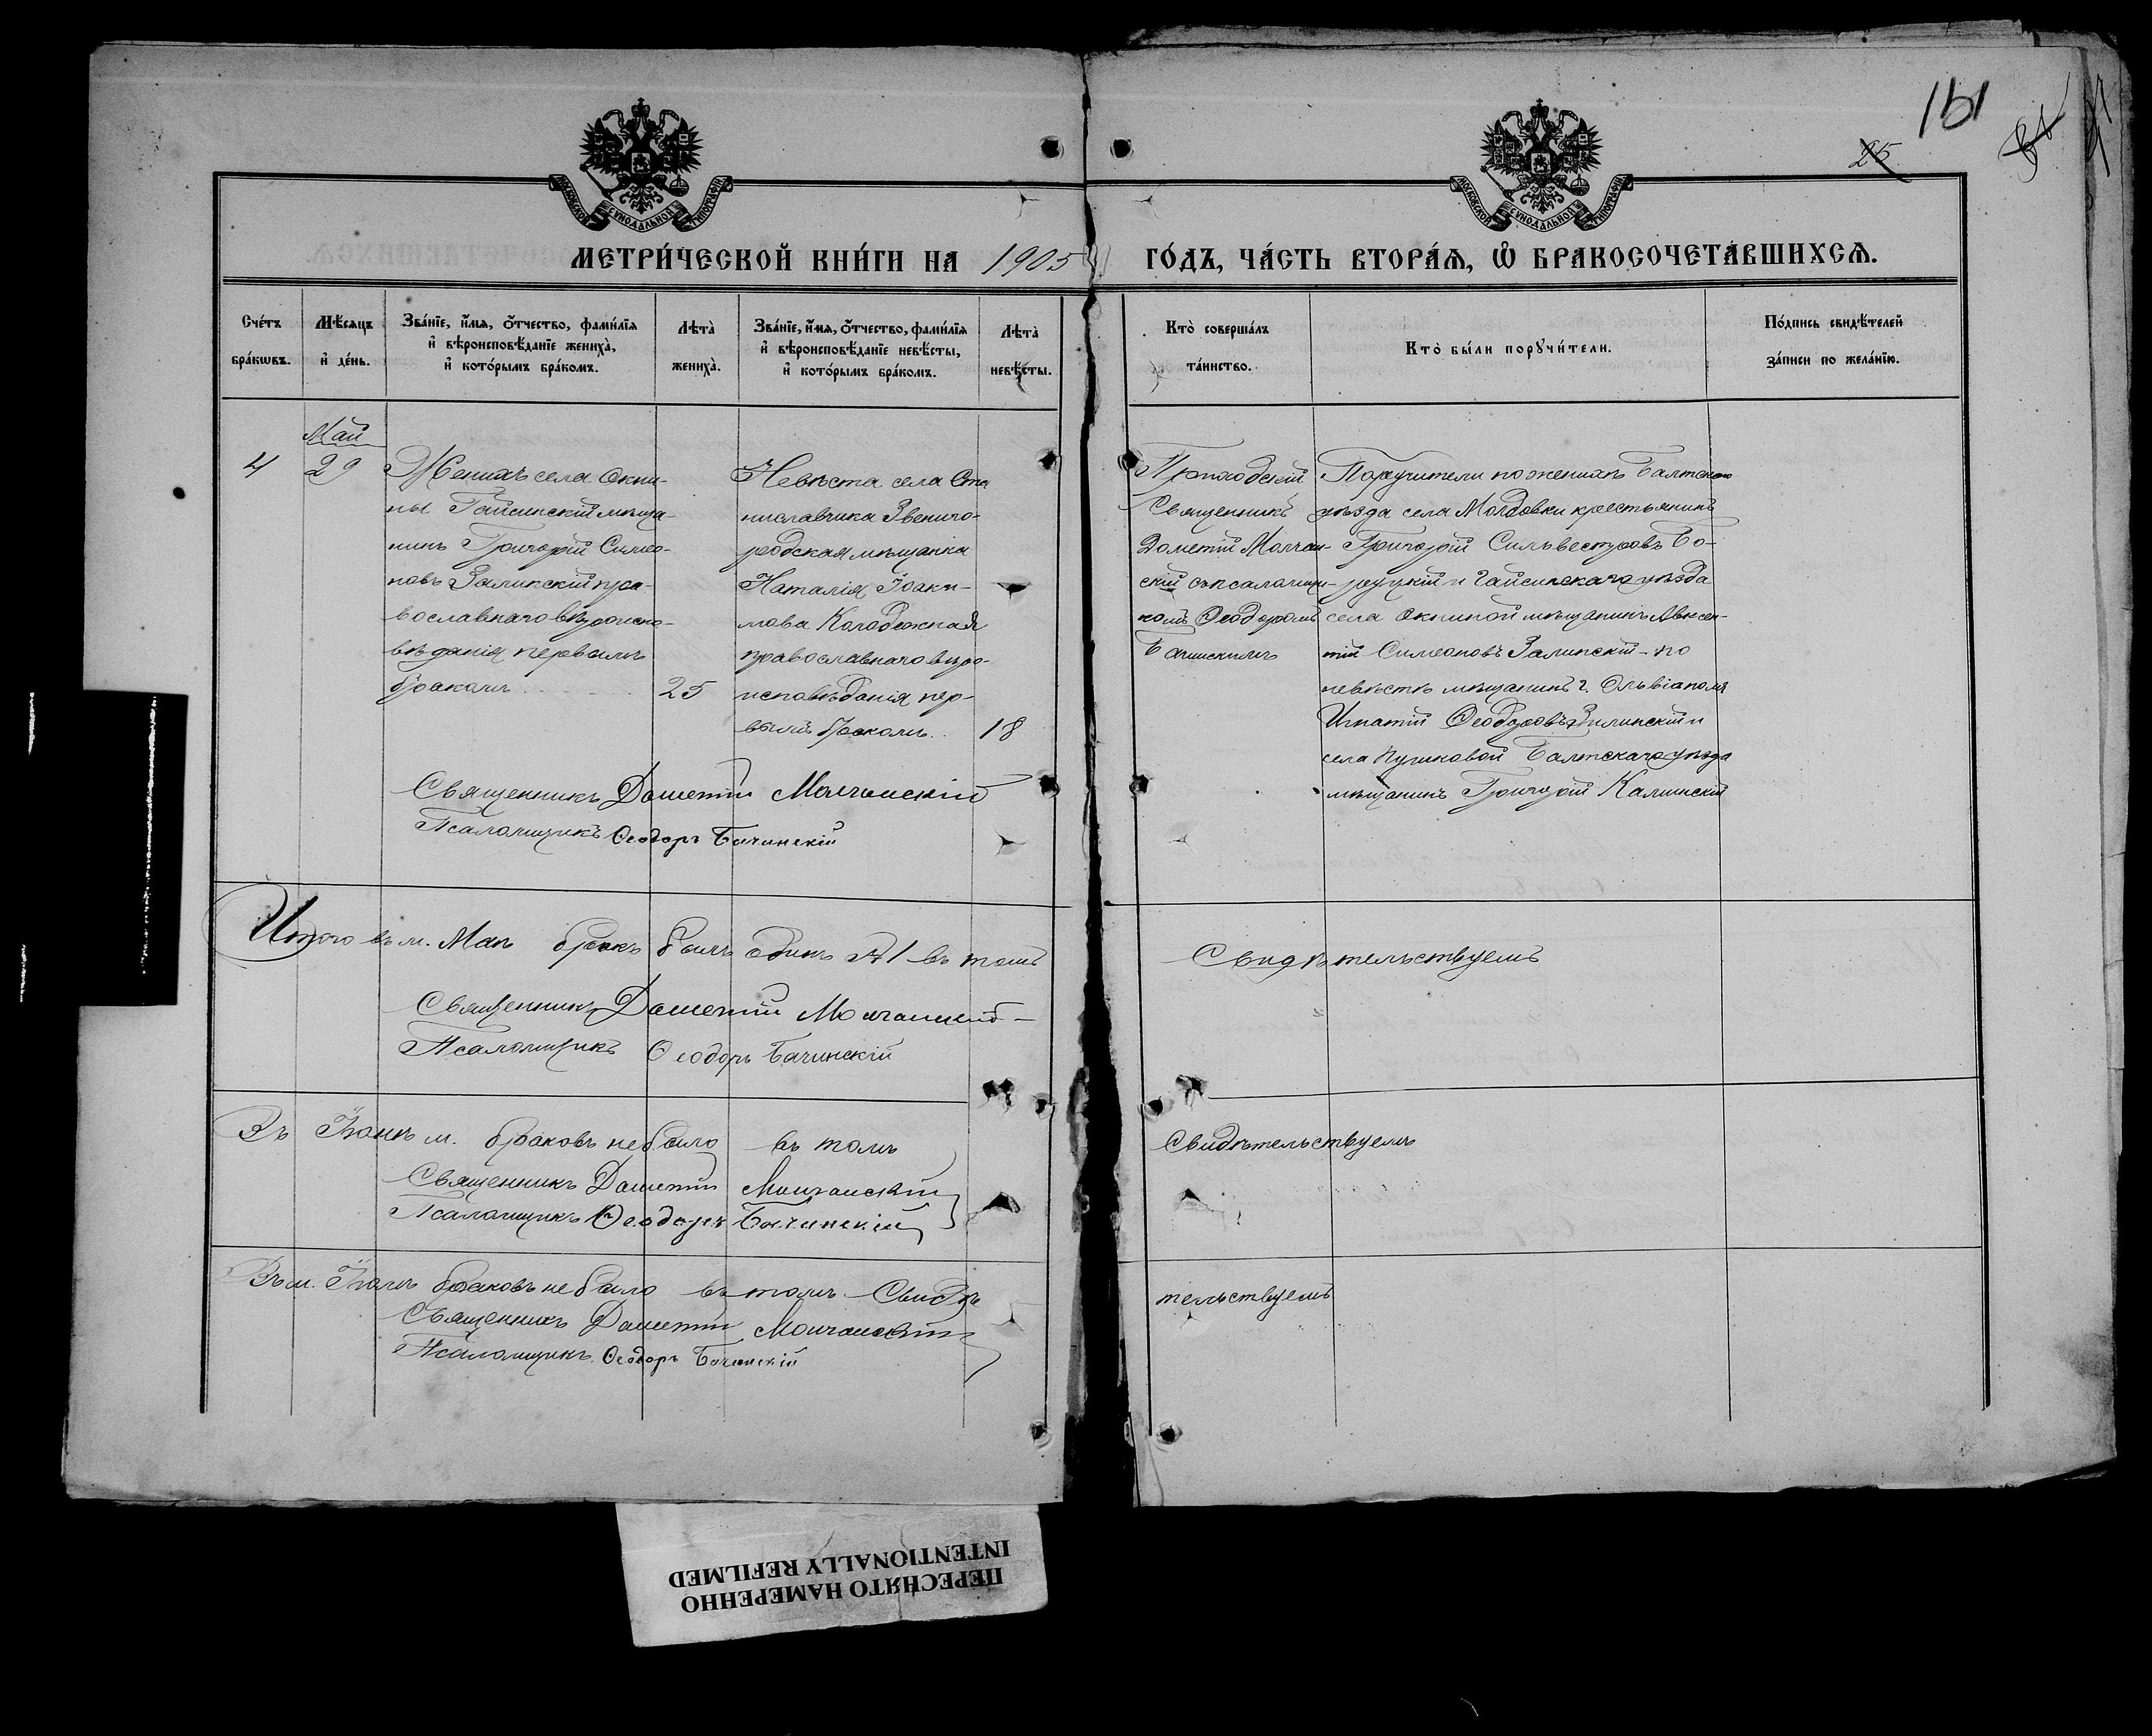 161
25
МОСКОВСКОЙ СѴНОДАЛЬНОЙ ТИПОГРАФІИ
МОСКОВСКОЙ СѴНОДАЛЬНОЙ ТИПОГРАФІИ
МЕТРИ́ЧЕСКОЙ КНИ́ГИ НА 1905 ГО́ДЪ, ЧА́СТЬ ВТОРА́Ѧ, Ѽ БРАКОСОЧЕТА́ВШИХСѦ.
Сче́тъ
бра́кѡвъ.
Мѣ́сѧцъ
и҆ де́нь.
Зва́нїе, и҆́мѧ, ѻ҆́тчество, фами́лїѧ
и҆ вѣроисповѣ́данїе жениха̀,
и҆ кото́рымъ бра́комъ.
Лѣта̀
жениха̀.
Зва́нїе, и҆́мѧ, ѻ҆́тчество, фами́лїѧ
и҆ вѣроисповѣ́данїе невѣ́сты,
и҆ кото́рымъ бра́комъ.
Лѣта̀
невѣ́сты.
Кто̀ соверша́лъ
та́инство.
Кто̀ бы́ли порꙋчи́тели.
По́дпись свидѣ́телей
за́писи по жела́нїю.
Май
4
29
Женихъ села Окни-
ны Гайсинскій мѣща-
нинъ Григорій Симео-
новъ Залинскій пра-
вославнаго вѣроиспо-
вѣданія первымъ
бракомъ
25
Невѣста села Ста
ниславчика Звениго-
родская мѣщанка
Наталія Іоаки-
мова Колодежная
православнаго вѣро-
исповѣданія пер-
вымъ бракомъ
18
Приходскій
Священникъ
Дометій Молчан-
скій съ псаломщи-
комъ Ѳеодоромъ
Бачинскимъ
Поручители по женихѣ Балтскаго
уѣзда села Молдовки крестьянинъ
Григорій Сильвестровъ Бо-
рецкій и Гайсинскаго уѣзда
села Окниной мѣщанинъ Авксен-
тій Симеоновъ Залинскій - по
невѣстѣ мѣщанинъ г. Ольвіаполя
Игнатій Ѳеодоровъ Зилинскій и
села Пушковой Балтскаго уѣзда
мѣщанинъ Григорій Калинскій
Священникъ Дометій Молчанскій
Псаломщикъ Ѳеодоръ Бачинскій
Итого въ м. Маѣ бракъ былъ одинъ №1 въ томъ Свидѣтельствуемъ
Священникъ Дометій Молчанскій
Псаломщикъ Ѳеодоръ Бачинскій
Въ Іюнѣ м. браковъ не было въ томъ Свидѣтельствуемъ
Священникъ Дометій Молчанскій
Псаломщикъ Ѳеодоръ Бачинскій
Въ м. Іюлѣ браковъ не было въ томъ Свидѣтельствуемъ
Священникъ Дометій Молчанскій
Псаломщикъ Ѳеодоръ Бачинскій
ПЕРЕСНЯТО НАМЕРЕННО
INTENTIONALLY REFILMED